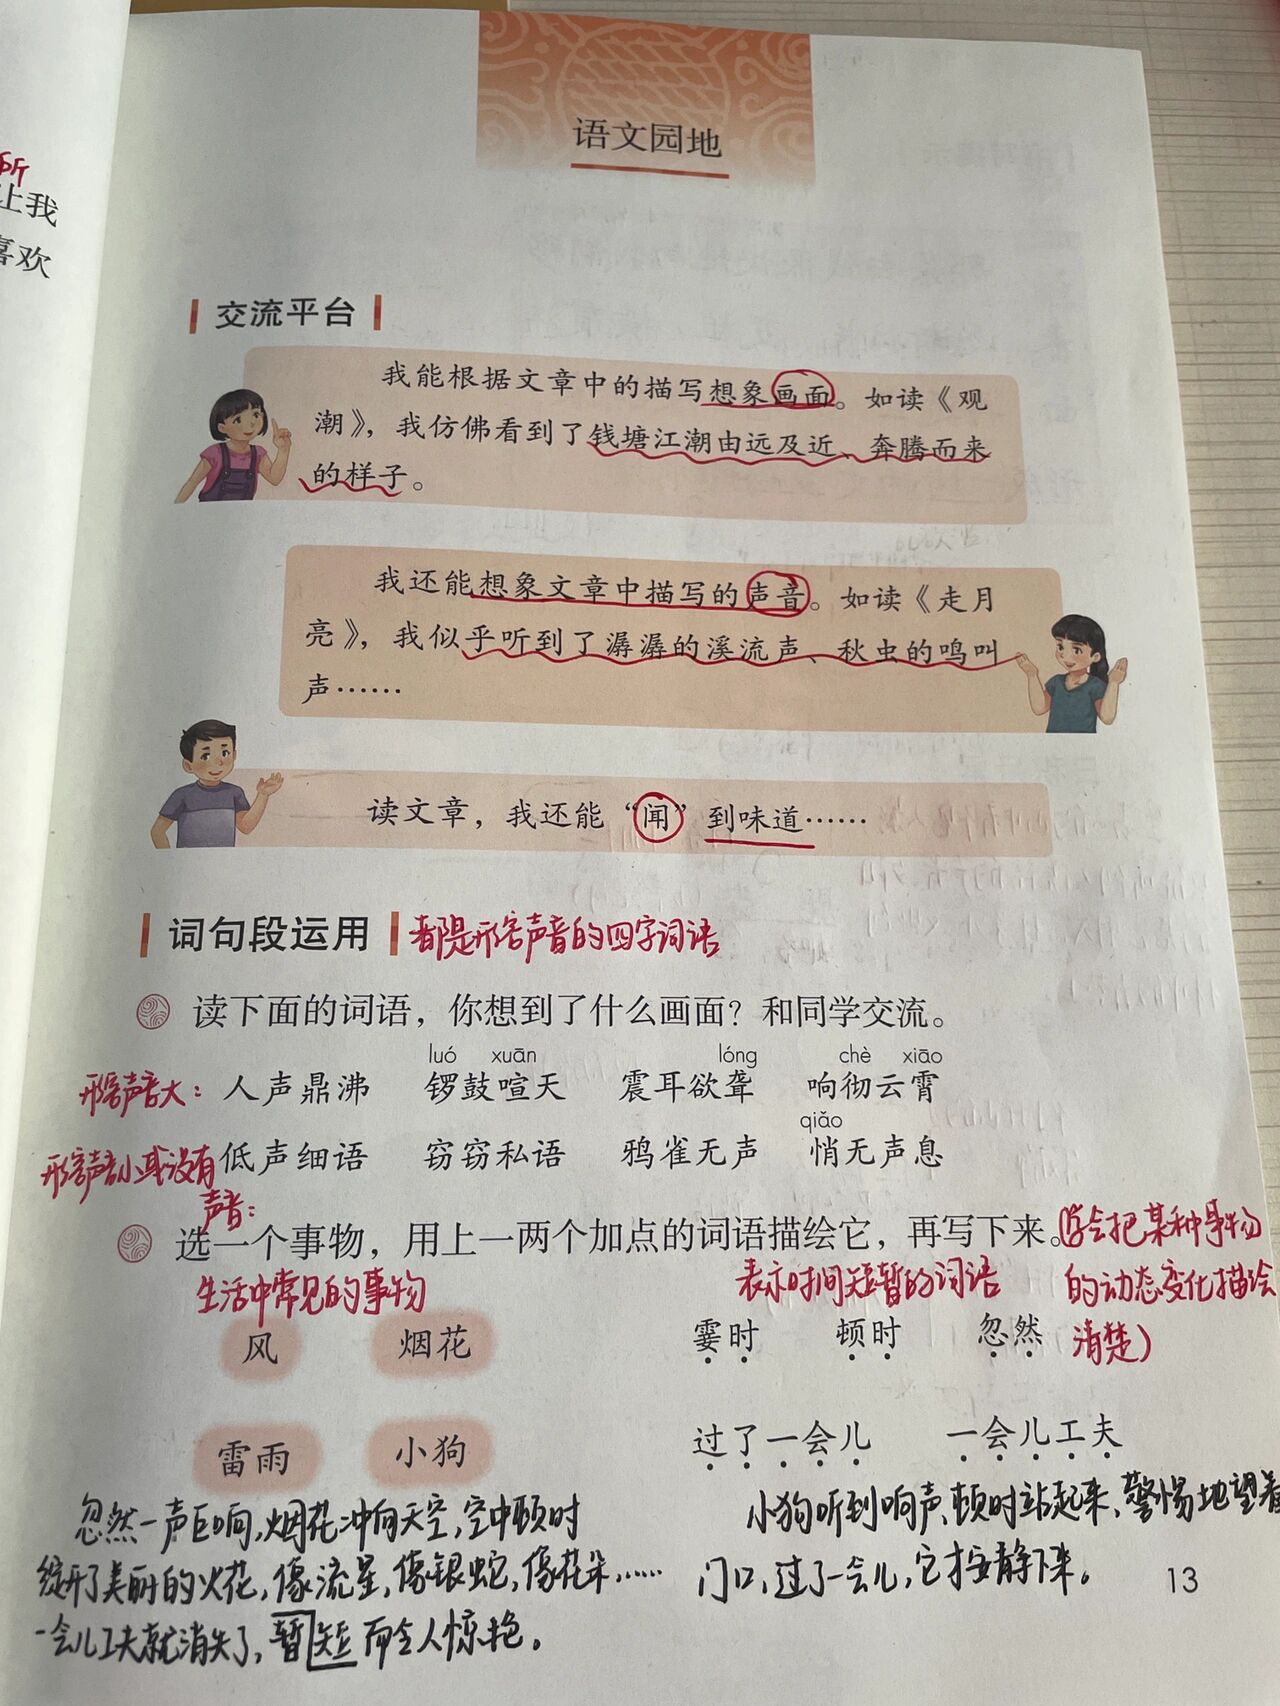 所
让我
喜欢
语文园地
交流平台
我能根据文章中的描写想象画面。如读《观
潮》，我仿佛看到了钱塘江潮由远及近、奔腾而来
的样子。
我还能想象文章中描写的声音。如读《走月
亮》，我似乎听到了潺潺的溪流声、秋虫的鸣叫
声……
读文章，我还能“闻”到味道……
词句段运用 都是形容声音的四字词语
读下面的词语，你想到了什么画面？和同学交流。
luó xuān lóng chè xiāo
形容声音大：人声鼎沸 锣鼓喧天 震耳欲聋 响彻云霄
qiǎo
形容声音小或没有 低声细语 窃窃私语 鸦雀无声 悄无声息
声音：
选一个事物，用上一两个加点的词语描绘它，再写下来。(学会把某种事物
生活中常见的事物 表示时间短暂的词语 的动态变化描绘
风 烟花 霎时 顿时 忽然 清楚)
雷雨 小狗 过了一会儿 一会儿工夫
忽然一声巨响，烟花冲向天空，空中顿时
绽开了美丽的火花，像流星，像银蛇，像花朵，……
一会儿工夫就消失了，暂短而令人惊艳。
小狗听到响声，顿时站起来，警惕地望着
门口，过了一会儿，它才安静下来。
13